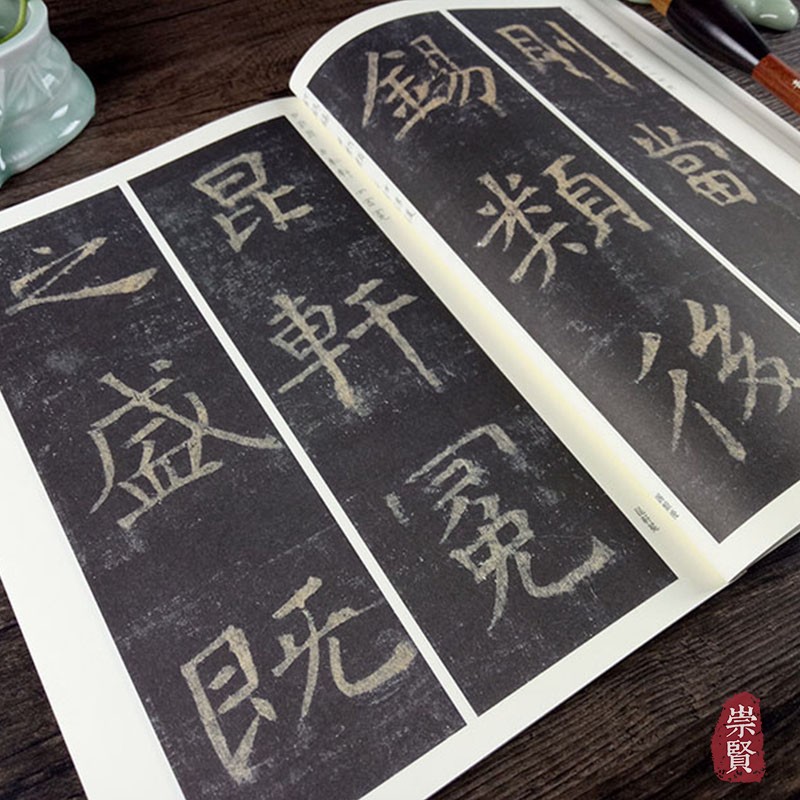 則當
錫類後
昆軒冕
之盛既
崇賢